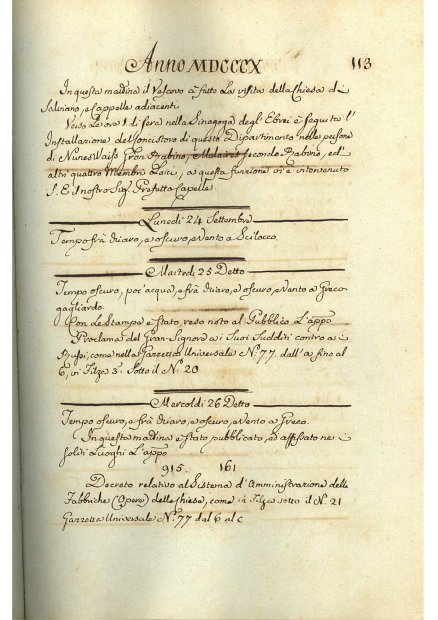 Anno MDCCCX 113
In questa mattina il Vescovo à fatto la visita della Chiesa di
Salviano, e Cappelle adiacenti
Verso le ore 1 di sera nella Sinagoga degl' Ebrei è seguita l'
Installazione del Concistoro di questo Dipartimento nelle persone
di Nunes Vais Gran Rabino, secondo Rabino, ed'
altri quattro Membri Laici, a questa funzione vi è intervenuto
S. E. il nostro Sig.r Prefetto Capelle
Lunedì 24 Settembre
Tempo frà chiaro, e oscuro, e vento a Scilocco
Martedì 25 Detto
Tempo oscuro, poc' acqua, e frà chiaro, e oscuro, e vento a Greco
gagliardo.
Con le Stampe è stato reso noto al Pubblico l'app.o
Proclama del Gran-Signore a i Suoi Sudditi contro a i
Russi, come nella Gazzetta Universale N.o 77. dall' a fino al
6, in Filza 3 sotto il N.o 20
Mercoldì 26 Detto
Tempo oscuro, e frà chiaro, e oscuro, e vento a Greco.
In questa mattina è stato pubblicato, ed affissato ne i
soliti Luoghi L'app.o
915. 161
Decreto relativo al Sistema d'Amministrazione delle
Fabbriche (Opere) delle Chiese, come in Filza sotto il N. 21
Gazzetta Universale N.o 77 dal 6 al c